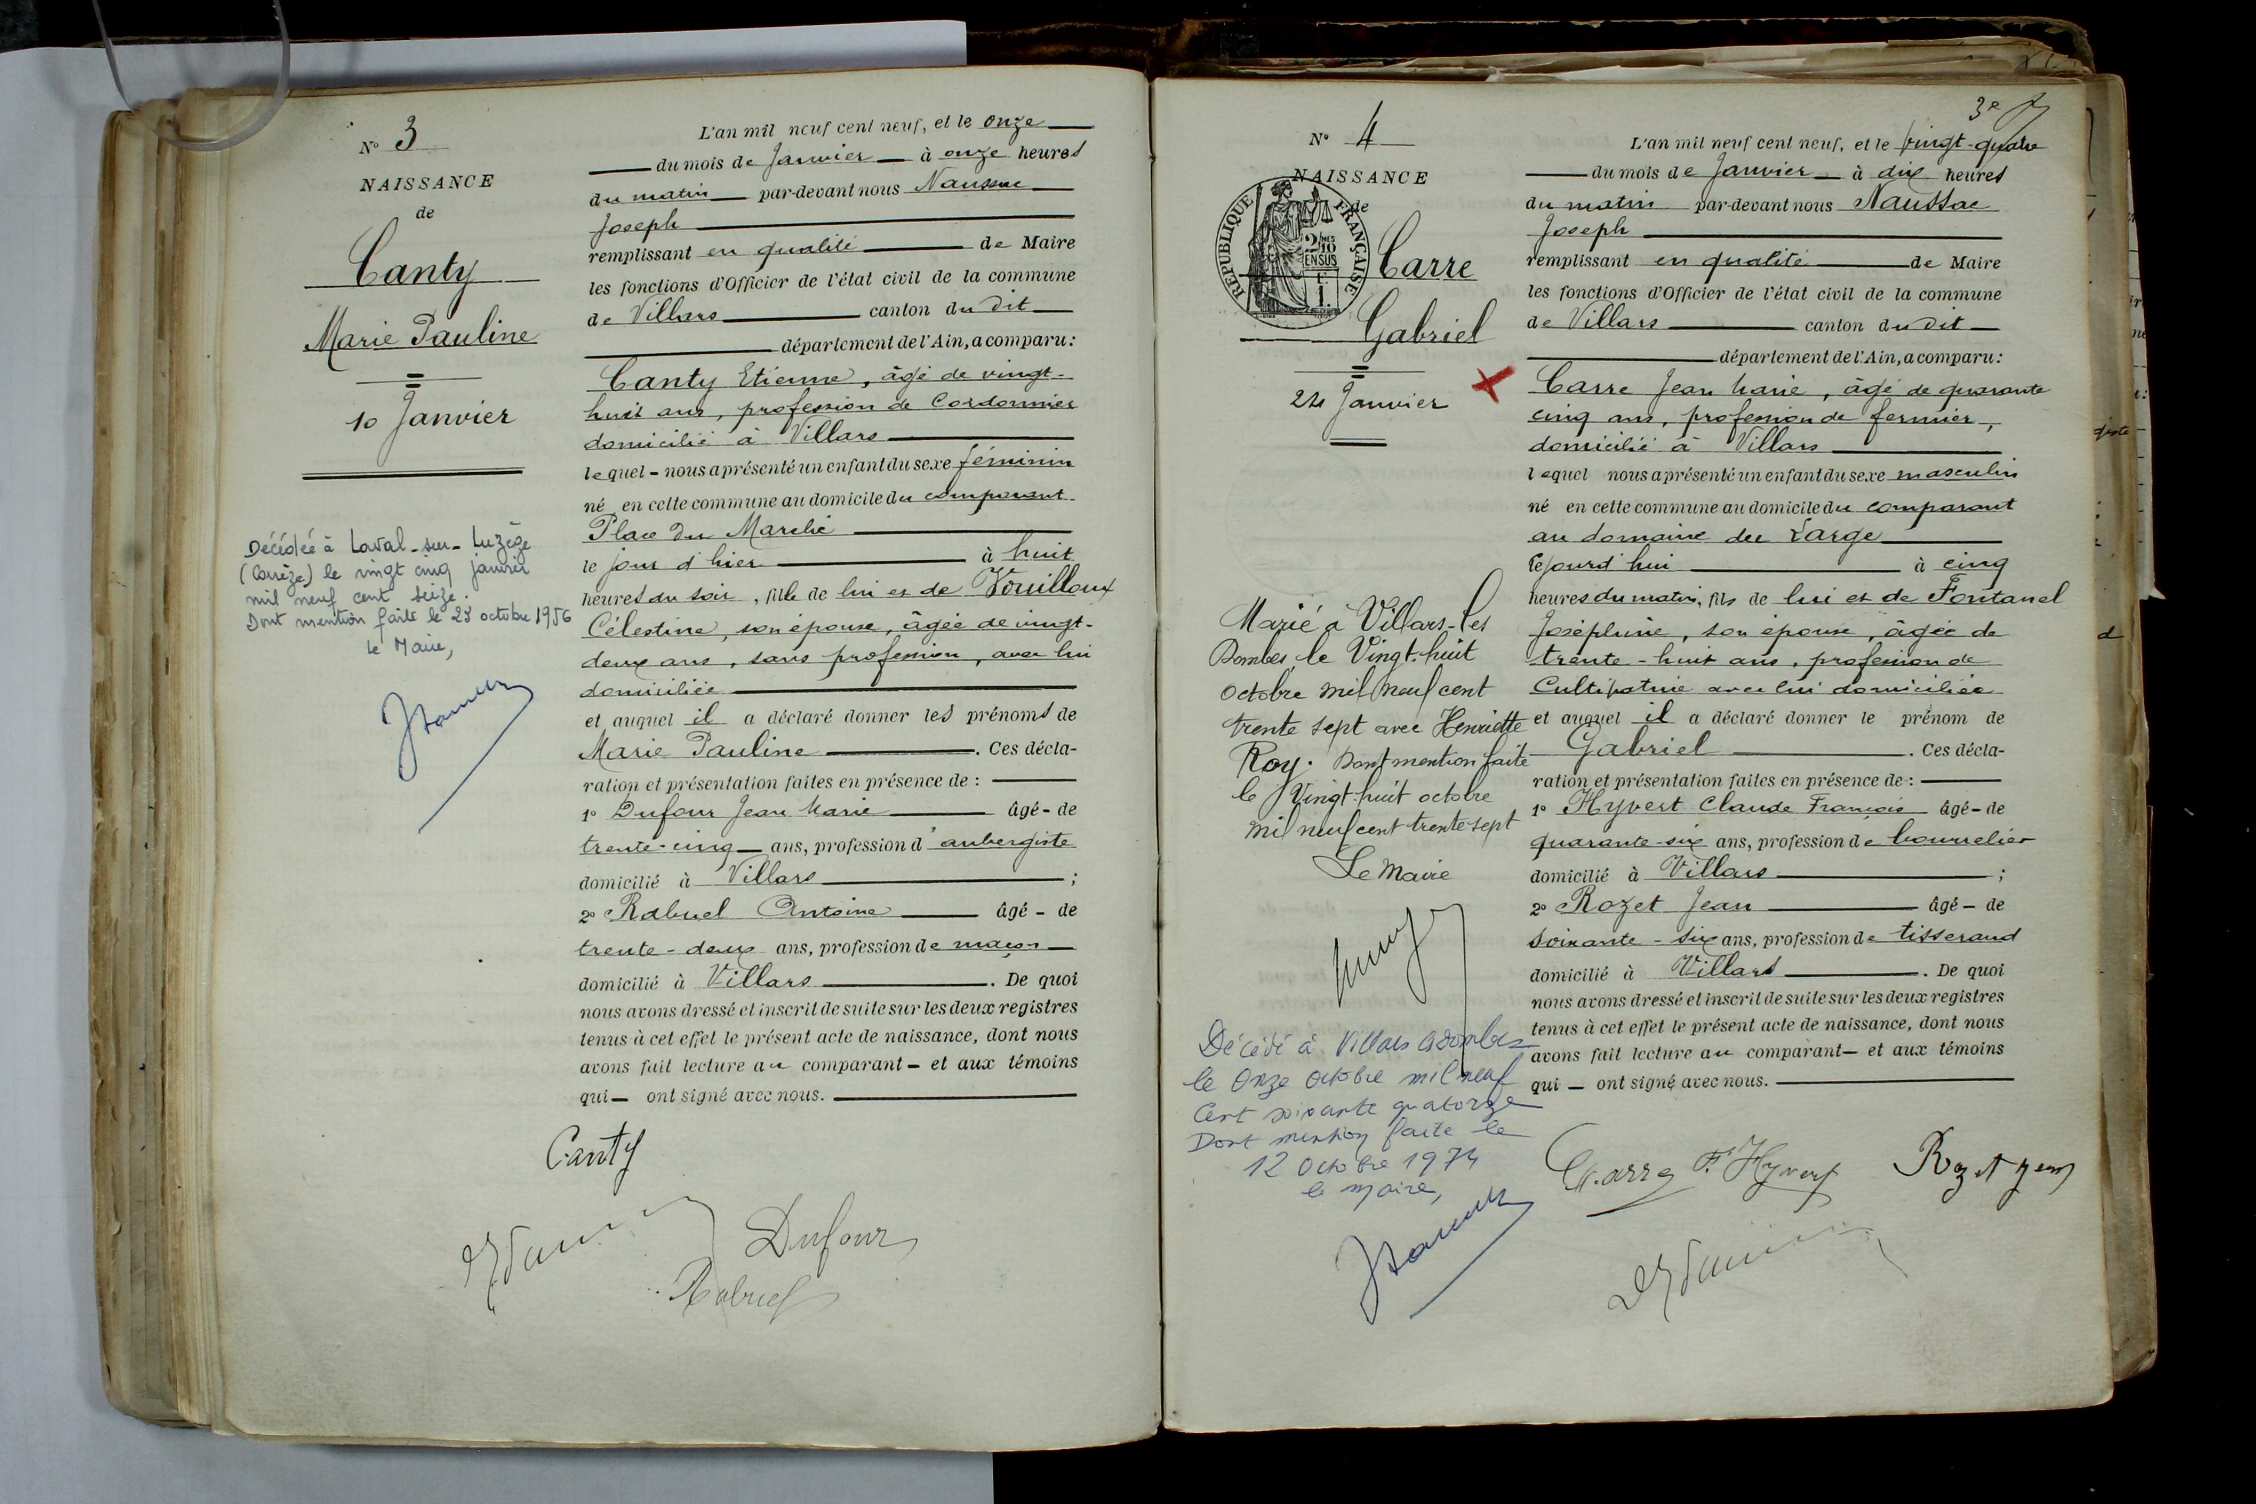 N° 3
NAISSANCE
de
Canty
Marie Pauline
10 Janvier
Décédée à Laval-sur-Luzège
(Corrèze) le vingt cinq janvier
mil neuf cent seize.
Dont mention faite le 23 octobre 1956
le Maire,
L'an mil neuf cent neuf, et le onze
du mois de Janvier à onze heures
du matin par-devant nous Naussac
Joseph
remplissant en qualité de Maire
les fonctions d'Officier de l'état civil de la commune
de Villars canton du dit
département de l'Ain, a comparu:
Canty Etienne, âgé de vingt-
huit ans, profession de Cordonnier
domicilié à Villars
lequel - nous a présenté un enfant du sexe féminin
né en cette commune au domicile du comparant
Place du Marché
le jour d'hier à huit
heures du soir, fille de lui et de Vouilloux
Célestine, son épouse, âgée de vingt-
deux ans, sans profession, avec lui
domiciliée
et auquel il a déclaré donner les prénoms de
Marie Pauline. Ces décla-
ration et présentation faites en présence de :
1° Dufour Jean Marie âgé - de
trente-cinq ans, profession d'aubergiste
domicilié à Villars ;
2° Rabuel Antoine âgé - de
trente-deux ans, profession de maçon
domicilié à Villars. De quoi
nous avons dressé et inscrit de suite sur les deux registres
tenus à cet effet le présent acte de naissance, dont nous
avons fait lecture au comparant - et aux témoins
qui - ont signé avec nous.
Canty
Dufour
Rabuel
3e
N° 4
NAISSANCE
de
RÉPUBLIQUE FRANÇAISE
2/10 EN SUS
1 F.
Carre
Gabriel
24 Janvier
Marié à Villars-les
Dombes, le Vingt-huit
octobre mil neuf cent
trente sept avec Henriette
Roy. Dont mention faite
le Vingt-huit octobre
mil neuf cent trente-sept
Le Maire
Décédé à Villars les Dombes
le Onze Octobre mil neuf
Cent soixante quatorze
Dont mention faite le
12 Octobre 1974
le maire,
L'an mil neuf cent neuf, et le vingt-quatre
du mois de Janvier à dix heures
du matin par-devant nous Naussac
Joseph
remplissant en qualité de Maire
les fonctions d'Officier de l'état civil de la commune
de Villars canton du dit
département de l'Ain, a comparu:
Carre Jean Marie, âgé de quarante
cinq ans, profession de fermier,
domicilié à Villars
lequel nous a présenté un enfant du sexe masculin
né en cette commune au domicile du comparant
au domaine du Large
cejourd'hui à cinq
heures du matin, fils de lui et de Fontanel
Joséphine, son épouse, âgée de
trente-huit ans, profession de
Cultivatrice avec lui domiciliée
et auquel il a déclaré donner le prénom de
Gabriel. Ces décla-
ration et présentation faites en présence de :
1° Hyvert Claude François âgé - de
quarante-six ans, profession de bourrelier
domicilié à Villars ;
2° Rozet Jean âgé - de
soixante-six ans, profession de tisserand
domicilié à Villars. De quoi
nous avons dressé et inscrit de suite sur les deux registres
tenus à cet effet le présent acte de naissance, dont nous
avons fait lecture au comparant - et aux témoins
qui - ont signé avec nous.
Carre F. Hyvert Rozet Jean